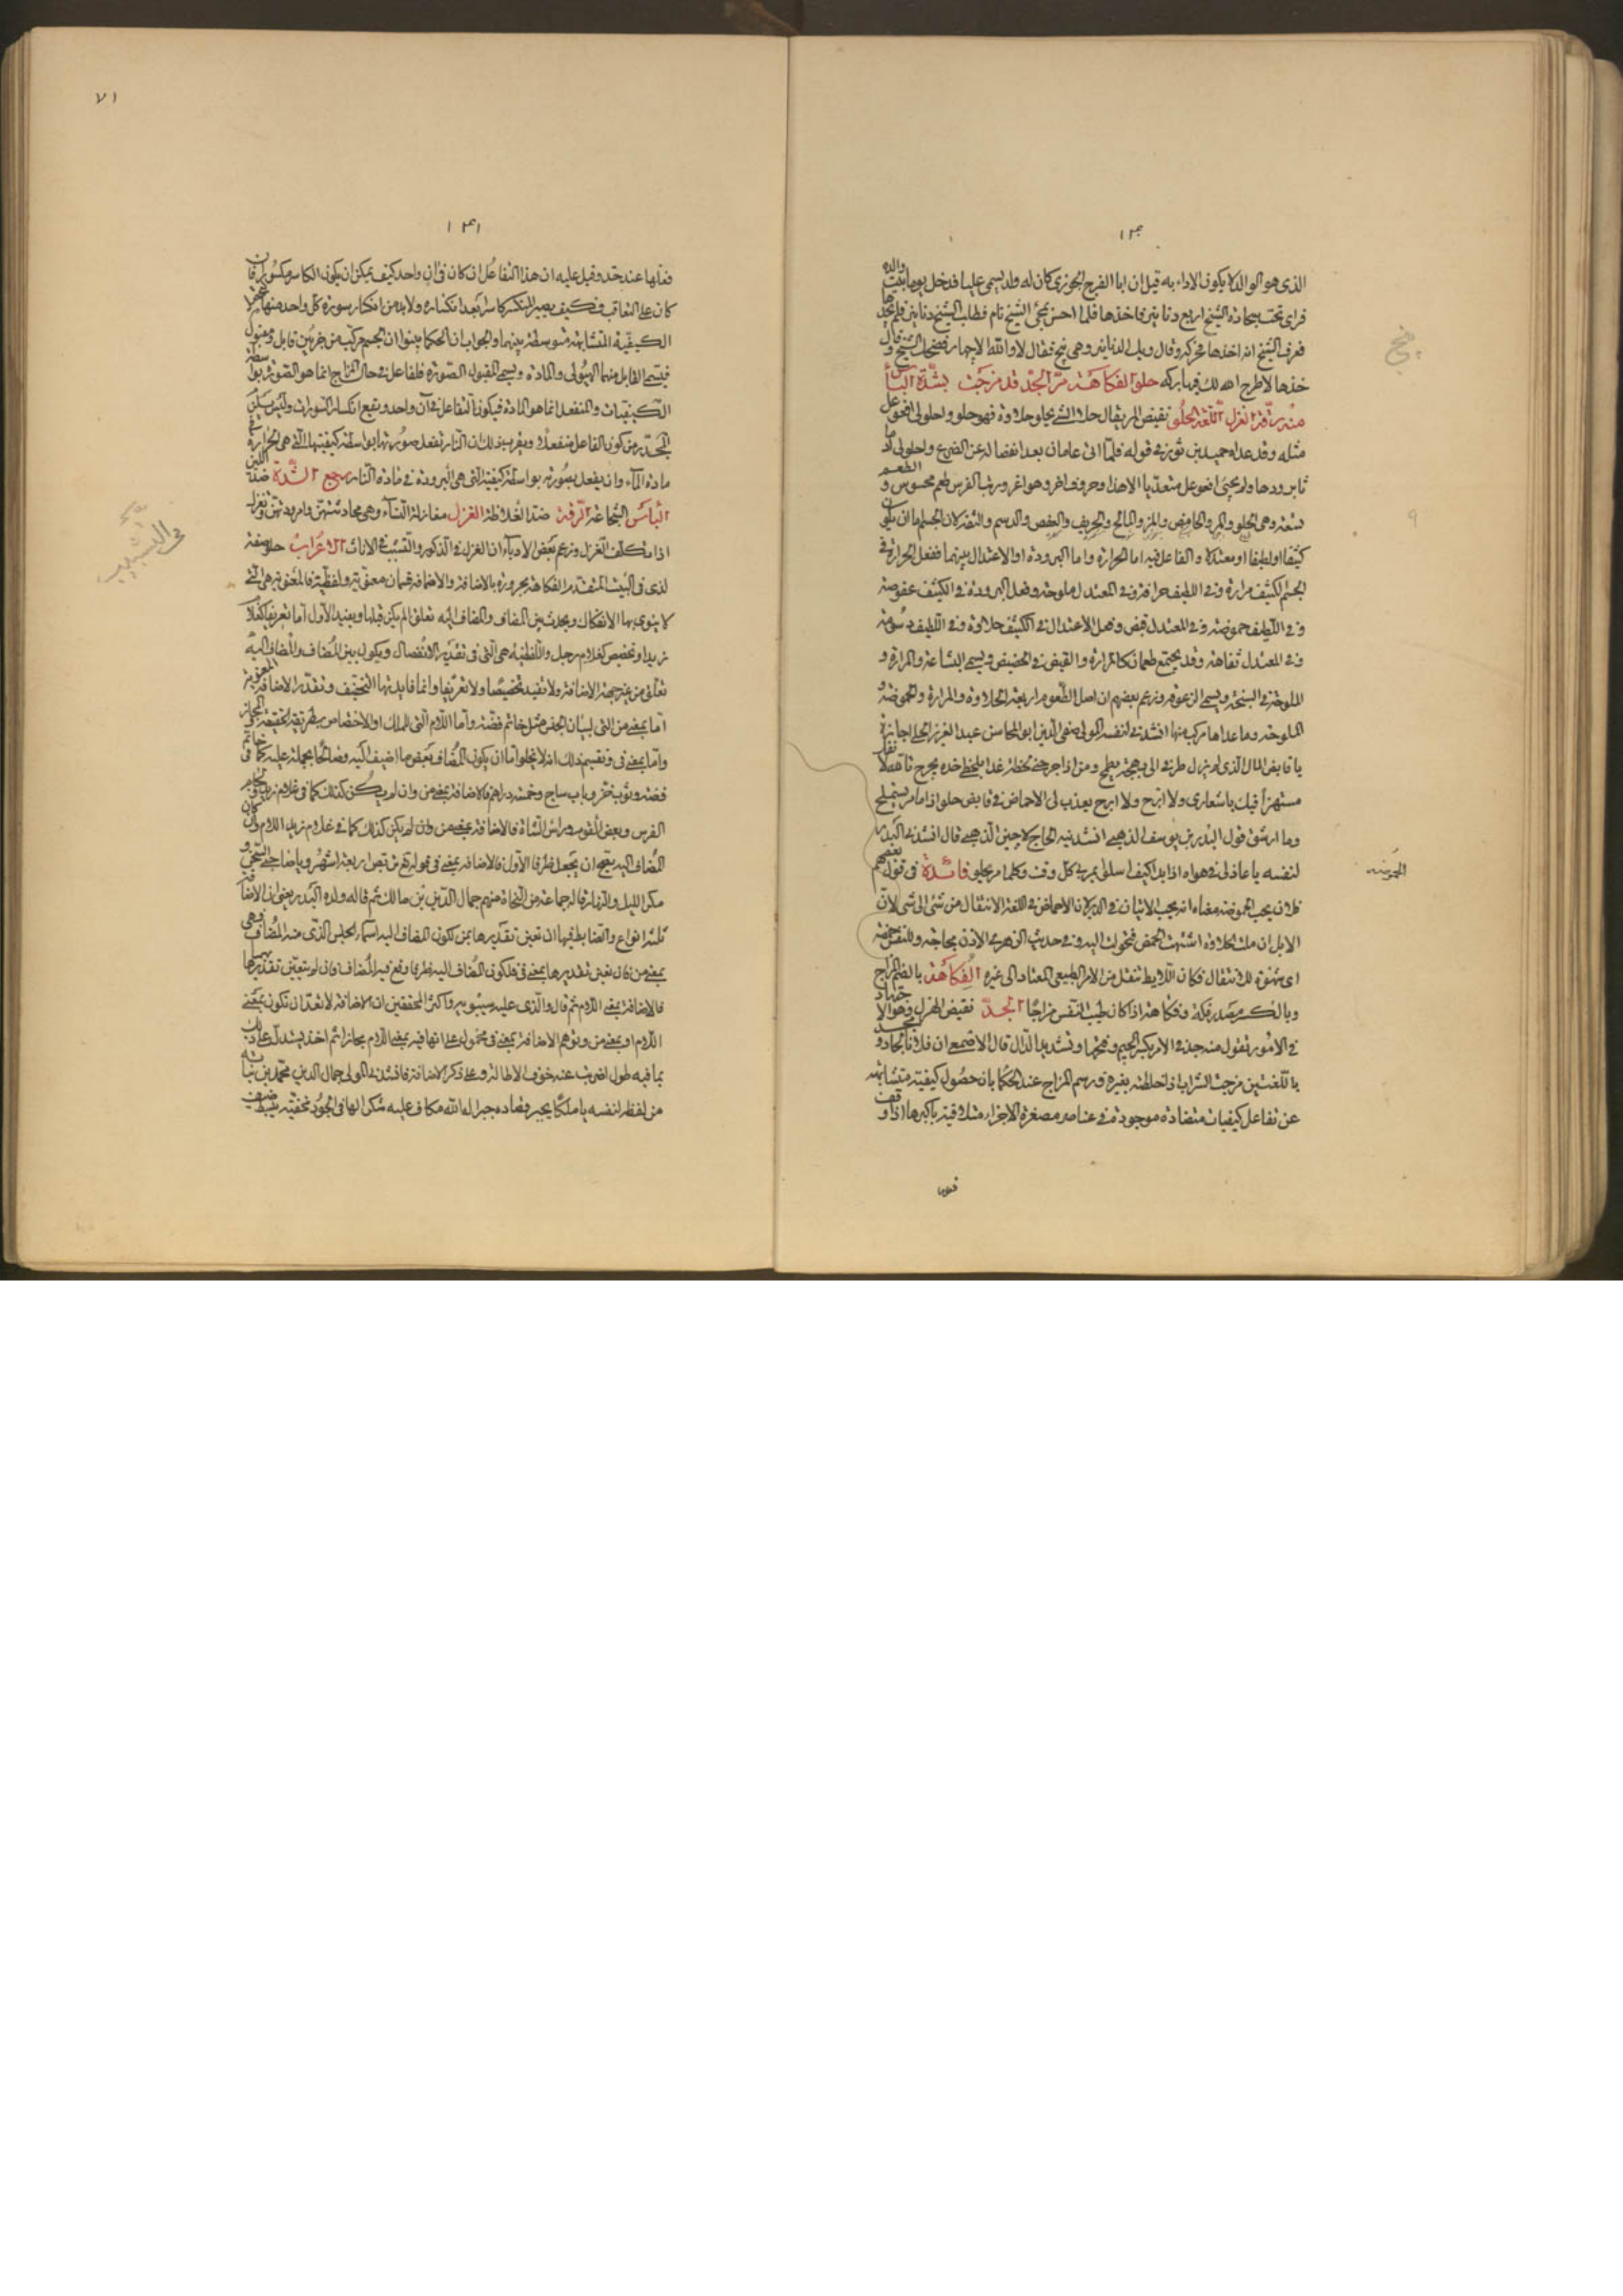 ١٤٠
الذى هو الوالد لا يكون الاداء به قيل ان ابا الفرج الجوزى كان له ولد يسمى عليا فدخل يوما بيت والده
فراى تحت سجادة الشيخ اربع دنانير فاخذها فلما احس بمجئ الشيخ نام فطلب الشيخ دنانيره فلم يجدها
فعرف الشيخ انه اخذها فحركه وقال ويلك الدنانير وهى بنج فقال لا والله الا خمار فضحك الشيخ وقال
خذها لا طرح الله لك فيها بركه حلو الفكاهة مرّ الجدّ قد مزجت بشدّة الباس
منه رقّة الغزل اللغة الحلو نقيض المر يقال حلا الشئ يحلو حلاوة فهو حلو واحلولى افعوعل
مثله وقد عداه حميد بن ثور فى قوله فلمّا اتى عامان بعد انفصاله عن الضرع واحلولى
ولم يجئ افعوعل متعدّيا الا هذا وحرف اخر وهو اعروريت الفرس طعم محسوس والطعم
تسعة وهى الحلو والمر والحامض والمز والمالح والحريف والعفص والدسم والتفه لان الجسم اما ان يكون
كثيفا او لطيفا او معتدلا والفاعل فيه اما الحرارة واما البرودة او الاعتدال بينهما ففعل الحرارة فى
الجسم الكثيف مرارة وفى اللطيف حرافة وفى المعتدل ملوحة وفعل البرودة فى الكثيف عفوصة
وفى اللطيف حموضة وفى المعتدل قبض وفعل الاعتدال فى الكثيف حلاوة وفى اللطيف دسومة
وفى المعتدل تفاهة وقد يجتمع طعمان كالمرارة والقبض فى الحضض ويسمى البشاعة والمرارة و
الملوحة فى السبخة ويسمى الزعوقة وزعم بعضهم ان اصل الطعوم اربعة الحلاوة والمرارة والحموضة و
الملوحة وما عداها مركب منها انشدنى لنفسه المولى صفى الدين ابو المحاسن عبد العزيز الحلى اجازة
يا قابض المال الذى لم يزل طرفى الى بهجته يطمح ومن اذا جرحته لحظة غدا بلحظ خده يجرح
مستهزأ فيك باشعارى ولا ابرح ولا ابرح يعذب لى الاحماض فى قابض حلو اذا ما مر يستملح
وما ارشق قول البدر بن يوسف الذهبى انشدنيه الحاج لاجين الذهبى قال انشدنى البدر
لنفسه يا عاذلى فى هواه اذا بدا كيف اسلو يمر بى كل وقت وكلما مر يحلو فائدة فى قول بعضهم
فلان يحب الحموضة معناه انه يحب الاتيان فى الدبر لان الاحماض فى اللغة الانتقال من شئ الى شئ لان
الابل ان ملت الحلاوة اشتهت الحمض فتحولت اليه وفى حديث الزهرى الاذن مجاجة وللنفس حمضة
اى شهوة للانتقال فكان اللايط تنقل من الامر الطبيعى المعتاد الى غيره الفكاهة بالضم المزاح
وبالكسر مصدر فكه فكاهة اذا كان طيب النفس مزاحا الجدّ نقيض الهزل وهو الاجتهاد
فى الامور تقول منه جد فى الامر بكسر الجيم وضمها وتشديد الدال قال الاصمعى ان فلانا لجاد مجد
باللغتين مزجت الشراب اذا خلطته بغيره ورسم المزاج عند الحكما بان حصول كيفية متشابهة
عن تفاعل كيفيات متضادة موجودة فى عناصر مصغرة الاجزاء متلاقية باكبرها اذا وقف
بنج
٩
الحموضة
٧١
١٤١
فعلها عند حد وقيل عليه ان هذا التفاعل ان كان فى ان واحد كيف يمكن ان يكون الكاسر مكسورا وان
كان على التعاقب فكيف يصير المنكسر كاسرا بعد انكساره ولا بد من انكسار سورة كل واحد منهما
الكيفية المتشابهة متوسطة بينهما والجواب ان الحكما بينوا ان الجسم مركب من جزئين قابل ومقبول
فيسمى القابل منهما الهيولى والمادة ويسمى المقبول الصورة فالفاعل فى حال المزاج انما هو الصورة بواسطة
الكيفيات والمنفعل انما هو المادة فيكون التفاعل فى آن واحد ويقع انكسار السورات وليس يمكن
التحدّر من كون الفاعل منفعلا ويقرب من ذلك ان النار تفعل صورتها بواسطة كيفيتها التى هى الحرارة فى
مادة الماء وان يفعل بصورته بواسطة كيفيته التى هى البرودة فى مادة النار رجع الشدّة ضد اللين
الباس الشجاعة الرقة ضد الغلاظة الغزل مغازلة النساء وهى محادثتهن ومراودتهن وتغزل
اذا تكلف الغزل وزعم بعض الادباء ان الغزل فى الذكور والتشبيب فى الاناث الاعراب حلو صفة
لذى فى البيت المتقدم الفكاهة مجرورة بالاضافة والاضافة قسمان معنوية ولفظية فالمعنوية هى التى
لا ينوى بها الانفكال ويحدث بين المضاف والمضاف اليه تعلق لم يكن قبلها ويفيد الاول اما تعريفا كغلام
زيد او تخصيص كغلام رجل واللفظية هى التى فى تقدير الانفصال ويكون بين المضاف والمضاف اليه
تعلق من غير جهة الاضافة ولا تفيد تخصيصا ولا تعريفا وانما فايدتها التخفيف وتقدّر الاضافة المعنوية
اما بمعنى من التى لبيان الجنس مثل خاتم فضة واما اللام التى للملك او الاختصاص بطريق الحقيقة او المجاز
واما بمعنى فى وتقسيم ذلك انه لا يخلو اما ان يكون المضاف بعض ما اضيف اليه وصالحا لحمله عليه كما فى خاتم
فضة وثوب خز وباب ساج وخمسة دراهم فالاضافة بمعنى من وان لم يكن كذلك كما فى غلام زيد ولجام
الفرس وبعض القوم وراس الشاة فالاضافة بمعنى من وان لم يكن كذلك كما فى غلام زيد اللام وان كان
المضاف اليه يصح ان يجعل ظرفا الاول فالاضافة بمعنى فى
مكر الليل والنهار قاله جماعة من النحاة منهم جمال الدين بن مالك ثم قال ولده البدر يعنى ان الاضافة
ثلثة انواع والضابط فيها ان تعين تقديرها بمن لكون المضاف اليه اسما لجنس الذى منه المضاف فهى
بمعنى من فان تعين تقديرها بمعنى فى لكون المضاف اليه ظرفا وقع فيه المضاف وان لم يتعين تقديرها بهما
فالاضافة بمعنى اللام ثم قال والذى عليه سيبويه واكثر المحققين ان الاضافة لا تعدّ ان تكون بمعنى
اللام او بمعنى من وتوهم الاضافة بمعنى فى محمول على انها فيه بمعنى اللام مجازا ثم اخذ يستدل على ذلك
بما فيه طول اضربت عنه خوف الاطالة وعلى ذكر الاضافة فانشدنى المولى جمال الدين محمد بن نباتة
من لفظه لنفسه